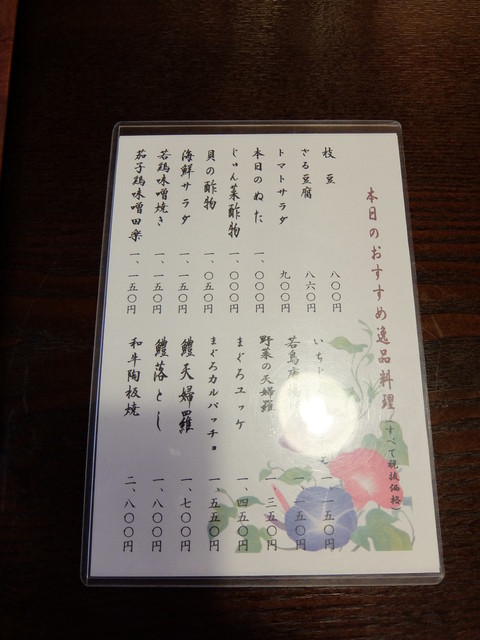 本日のおすすめ逸品料理(すべて税抜価格)
枝豆 八〇〇円
ざる豆腐 八六〇円
トマトサラダ 九〇〇円
本日のぬた 一、〇〇〇円
じゅん菜酢物 一、〇〇〇円
貝の酢物 一、〇五〇円
海鮮サラダ 一、一五〇円
若鶏味噌焼き 一、一五〇円
茄子鶏味噌田楽 一、一五〇円
いちじ 一、一五〇円
若鳥唐 一、一五〇円
野菜の天婦羅 一、三五〇円
まぐろユッケ 一、四五〇円
まぐろカルパッチョ 一、五五〇円
鱧天婦羅 一、七〇〇円
鱧落とし 一、八〇〇円
和牛陶板焼 二、八〇〇円